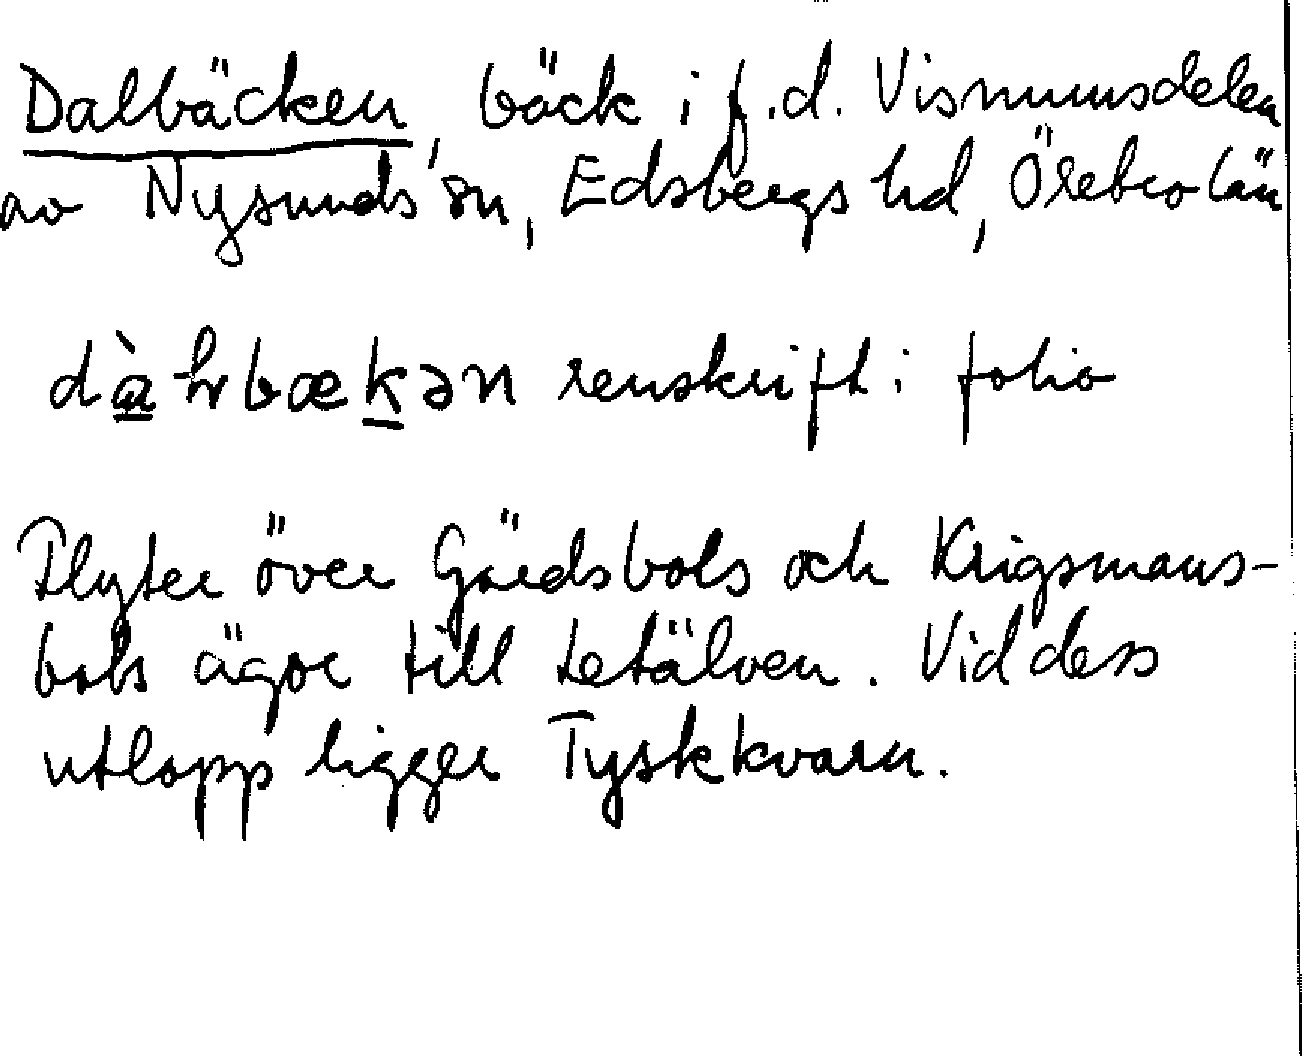 Dalbäcken, bäck i f.d. Visnumsdelen
av Nysunds sn, Edsbergs hd, Örebro län
renskrift i folio
Flyter över Gärdsbols och Krigsmans-
bols ägor till Letälven. Vid dess
utlopp ligger Tyskkvarn.